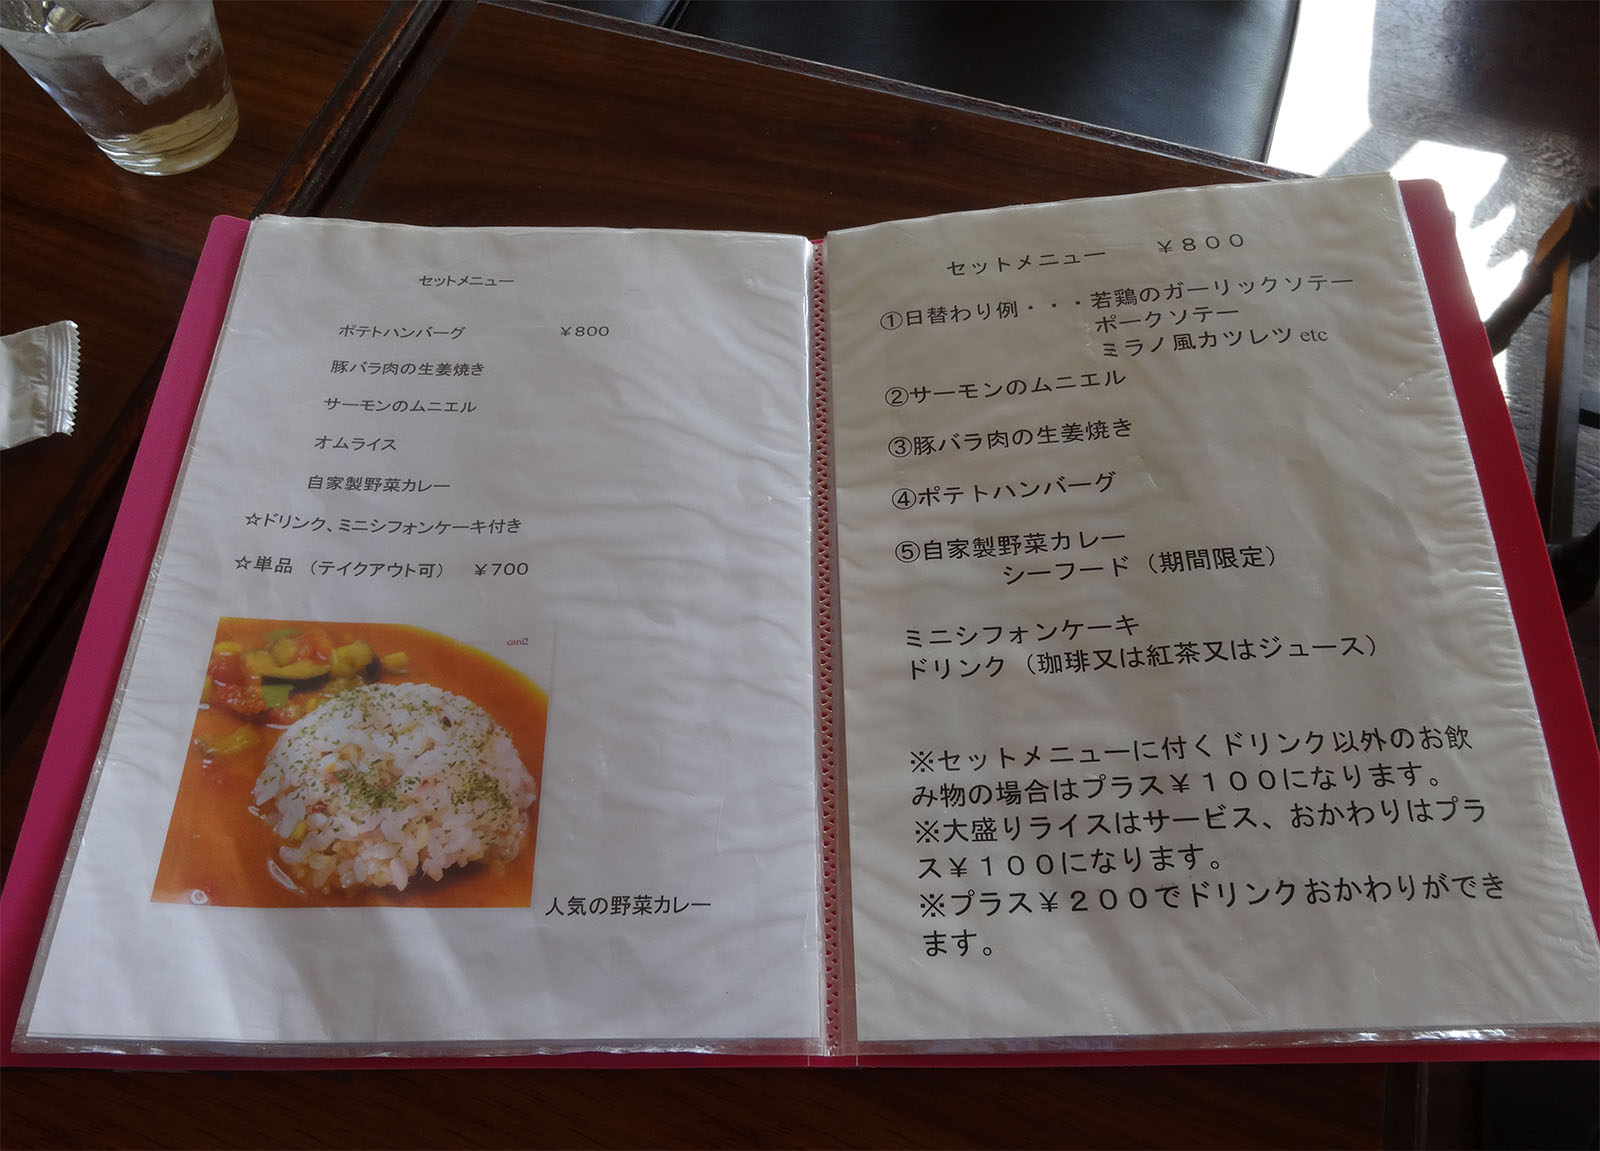 セットメニュー
ポテトハンバーグ ￥800
豚バラ肉の生姜焼き
サーモンのムニエル
オムライス
自家製野菜カレー
☆ドリンク、ミニシフォンケーキ付き
☆単品 （テイクアウト可） ￥700
人気の野菜カレー
セットメニュー ￥８００
①日替わり例・・・若鶏のガーリックソテー
ポークソテー
ミラノ風カツレツ etc
②サーモンのムニエル
③豚バラ肉の生姜焼き
④ポテトハンバーグ
⑤自家製野菜カレー
シーフード（期間限定）
ミニシフォンケーキ
ドリンク（珈琲又は紅茶又はジュース）
※セットメニューに付くドリンク以外のお飲
み物の場合はプラス￥１００になります。
※大盛りライスはサービス、おかわりはプラ
ス￥１００になります。
※プラス￥２００でドリンクおかわりができ
ます。